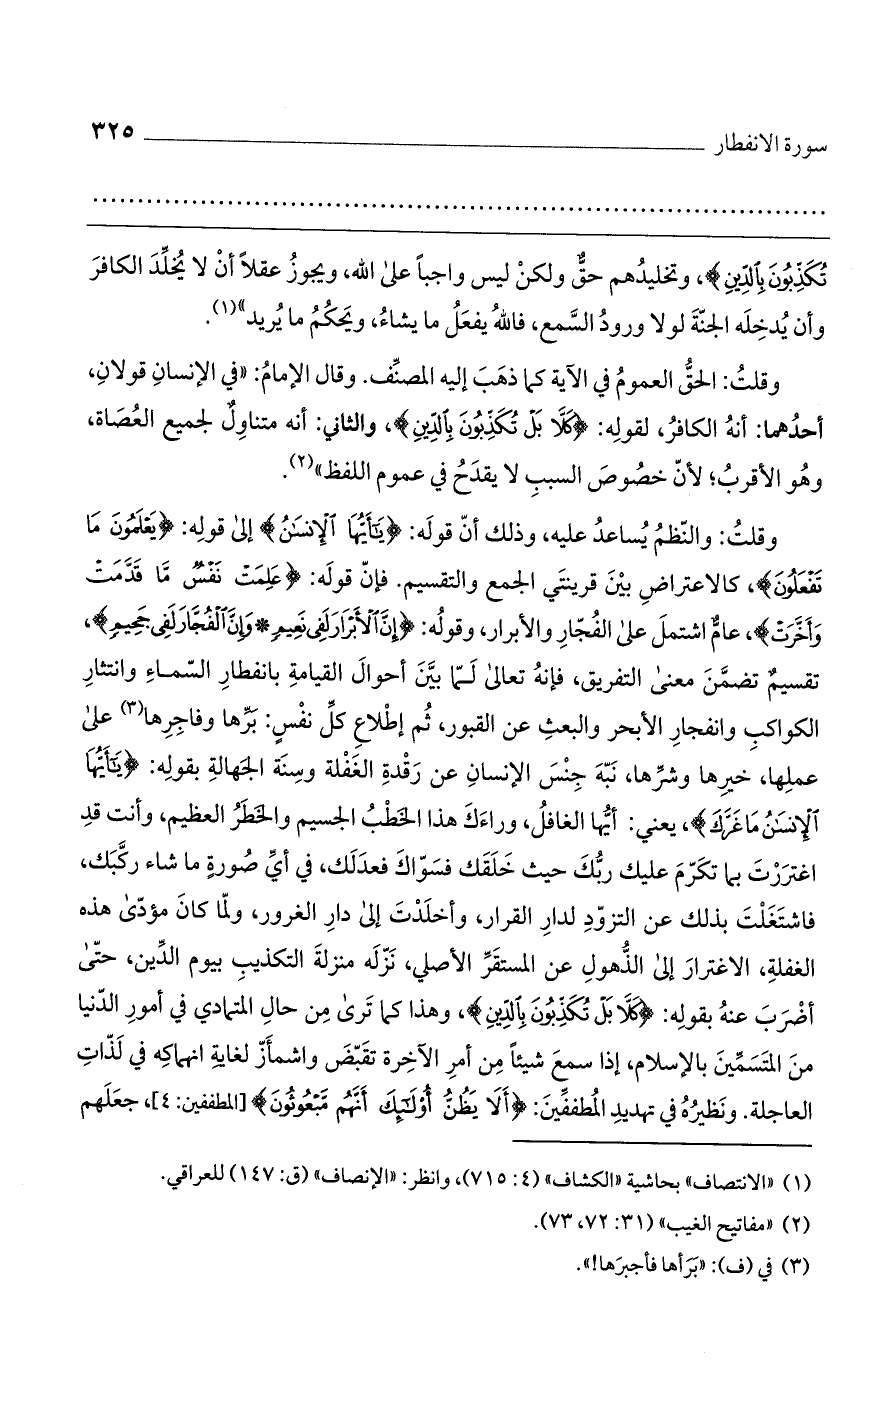 سورة الانفطار ٣٢٥
تُكَذِّبُونَ بِٱلدِّينِ﴾، وتخليدُهم حقٌّ ولكنْ ليس واجباً علىٰ الله، ويجوزُ عقلاً أنْ لا يُخلِّدَ الكافرَ
وأن يُدخِلَه الجنّةَ لولا ورودُ السَّمع، فاللهُ يفعَلُ ما يشاءُ، ويَحكُمُ ما يُريد»(١).
وقلتُ: الحقُّ العمومُ في الآية كما ذهَبَ إليه المصنِّف. وقال الإمامُ: «في الإنسانِ قولان،
أحدُهما: أنهُ الكافرُ، لقولِه: ﴿كَلَّا بَلْ تُكَذِّبُونَ بِٱلدِّينِ﴾، والثاني: أنه متناوِلٌ لجميع العُصَاة،
وهُو الأقربُ؛ لأنّ خصُوصَ السببِ لا يقدَحُ في عموم اللفظ»(٢).
وقلتُ: والنّظمُ يُساعدُ عليه، وذلك أنّ قولَه: ﴿يَٰٓأَيُّهَا ٱلْإِنسَٰنُ﴾ إلىٰ قولِه: ﴿يَعْلَمُونَ مَا
تَفْعَلُونَ﴾، كالاعتراضِ بيْنَ قرينتَي الجمع والتقسيم. فإنّ قولَه: ﴿عَلِمَتْ نَفْسٌ مَّا قَدَّمَتْ
وَأَخَّرَتْ﴾، عامٌّ اشتملَ علىٰ الفُجّارِ والأبرار، وقولُه: ﴿إِنَّ ٱلْأَبْرَارَ لَفِى نَعِيمٍ * وَإِنَّ ٱلْفُجَّارَ لَفِى جَحِيمٍ﴾،
تقسيمٌ تضمَّنَ معنىٰ التفريق، فإنهُ تعالىٰ لَـمّا بيَّنَ أحوالَ القيامةِ بانفطارِ السّماءِ وانتثارِ
الكواكبِ وانفجارِ الأبحر والبعثِ عن القبور، ثُم إطْلاعِ كلِّ نفْسٍ: بَرِّها وفاجِرِها(٣) علىٰ
عملِها، خيرِها وشرِّها، نَبّهَ جِنْسَ الإنسانِ عن رَقْدةِ الغَفْلة وسِنَة الجَهالةِ بقولِه: ﴿يَٰٓأَيُّهَا
ٱلْإِنسَٰنُ مَا غَرَّكَ﴾، يعني: أيُّها الغافلُ، وراءَكَ هذا الخَطْبُ الجسيم والخَطَرُ العظيم، وأنت قدِ
اغترَرْتَ بما تكَرّمَ عليك ربُّكَ حيث خَلَقَك فسَوّاكَ فعدَلَك، في أيِّ صُورةٍ ما شاء ركَّبَك،
فاشتَغَلْتَ بذلك عن التزوّدِ لدارِ القرار، وأخلَدْتَ إلىٰ دارِ الغرور، ولمّا كانَ مؤدّىٰ هذه
الغفلةِ، الاغترارَ إلىٰ الذُّهولِ عن المستقَرِّ الأصلي، نَزّلَه منزلةَ التكذيبِ بيوم الدِّين، حتّىٰ
أضْرَبَ عنهُ بقولِه: ﴿كَلَّا بَلْ تُكَذِّبُونَ بِٱلدِّينِ﴾، وهذا كما تَرىٰ مِن حالِ المتمادي في أمورِ الدّنيا
منَ المتَسَمِّينَ بالإسلام، إذا سمعَ شيئاً مِن أمرِ الآخِرة تقَبَّضَ واشمأَزّ لغايةِ انهماكِه في لَذّاتِ
العاجلة. ونَظيرُهُ في تهديدِ المُطففِّينَ: ﴿أَلَا يَظُنُّ أُو۟لَٰٓئِكَ أَنَّهُم مَّبْعُوثُونَ﴾ [المطففين: ٤]، جعَلَهم
(١) «الانتصاف» بحاشية «الكشاف» (٤: ٧١٥)، وانظر: «الإنصاف» (ق: ١٤٧) للعراقي.
(٢) «مفاتيح الغيب» (٣١: ٧٢، ٧٣).
(٣) في (ف): «بَرَأها فأجبرَها!».